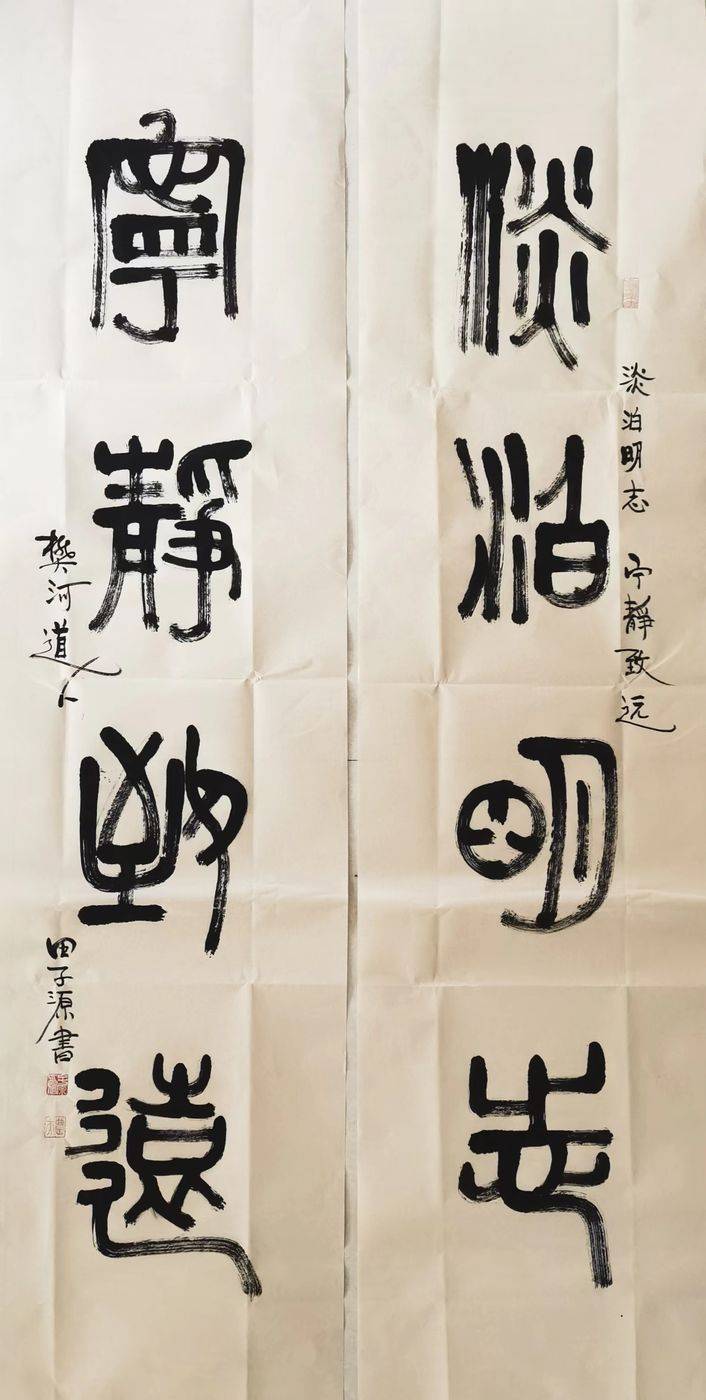 淡泊明志
淡泊明志 宁靜致远
寧靜致遠
樊河道人
田子源書